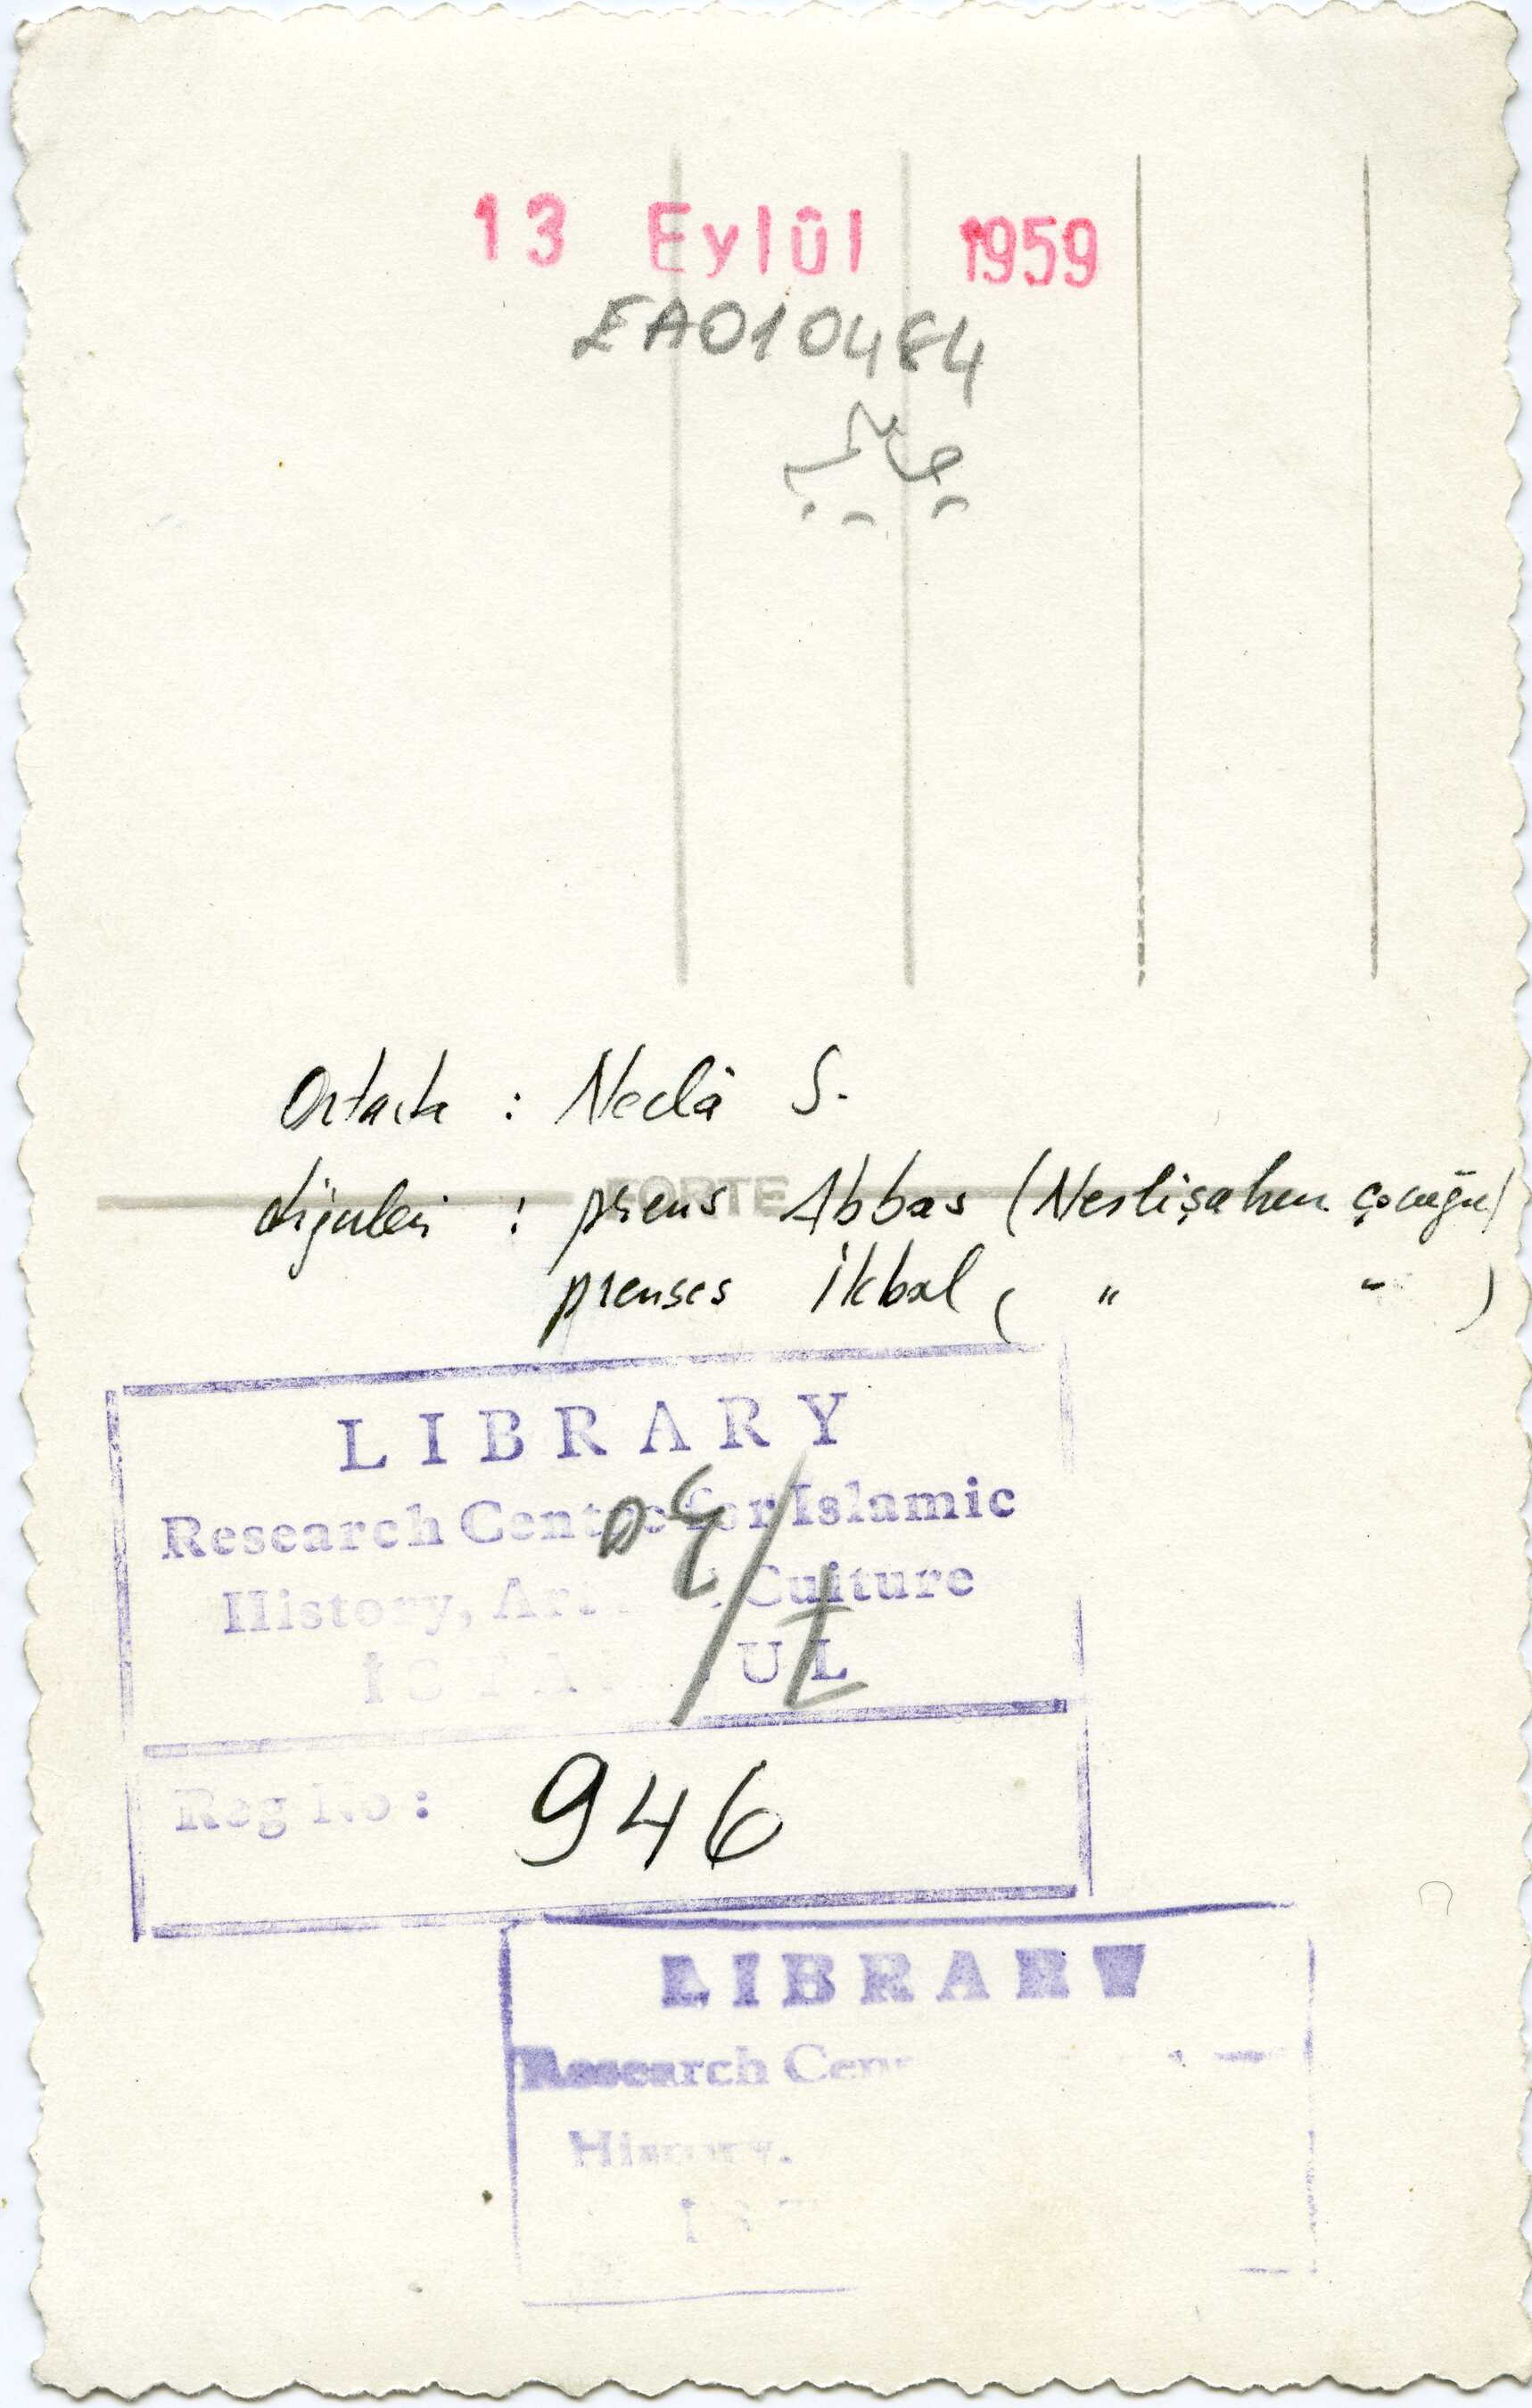 13 Eylûl 1959
EA010484
Ortada : Neclâ S.
FORTE
diğerleri : prens Abbas (Neslişahın çocuğu)
prenses İkbal ( " " )
LIBRARY
Research Centre for Islamic
History, Art Culture
ISTANBUL
Reg No : 946
LIBRARY
Research Cen
History,